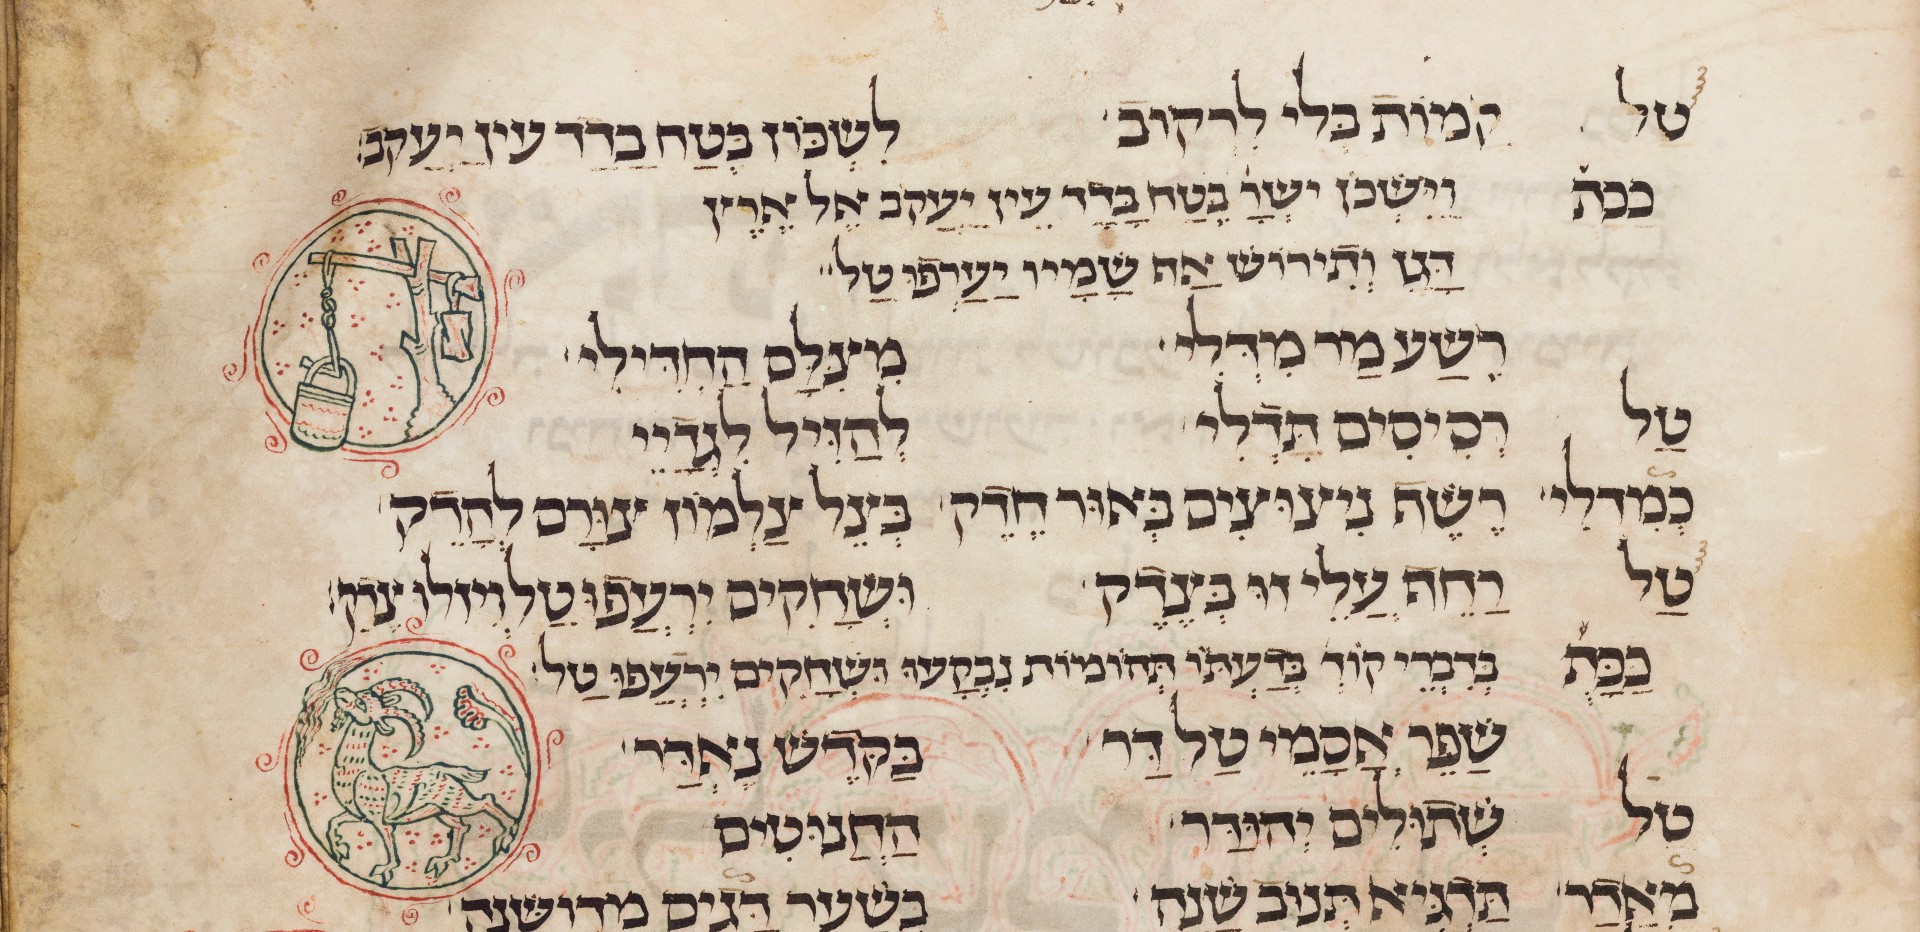 טַל קֹמוֹת בְּלִי לִרְקוֹב לִשְׁכּוֹן בֶּטַח בַדַד עין יַעֲקב
ככת וַיִּשְׁכֹּן ישרָ בֶּטַח בָּדָד עֵין יַעֲקב אֶל אֶרֶץ
דָּגָן וְתִירוֹשׁ אַף שָׁמָיו יַעַרְפוּ טַל
רֶשַׁע מַר מִדְּלִי מִצִּלָּם הַחְדִּילִי
טַל רְסִיסִים תִּדְלִי לְהַגְדִּיל לִגְדָיֵי
כְּמִדלִי רֶשֶׁף נִיצוּצִים כְּאוּר חֶדֶק בְּצֵל צַלְמוֹן צוּרָם לְהָדֵק
טַל רַחֵף עֲלֵי זוּ בְּצֶדֶק וּשְׁחָקִים יִרְעֲפוּ טַל וְיזלוּ צֶדֶק
כַּכָּת בְּדִבְרֵי קוֹד בְּדַעְתּוֹ תְּהוֹמוֹת נִבְקָעוּ וּשְׁחָקִים יִרְעֲפוּ טַל
שַׁפֵּר אֲסָמֵי טַל דַּר בַּקֹּדֶשׁ נֶאְדַּר
טַל שְׁתוּלִים יְהוּדַּר הַחֲנוּטִים
מֵאֲדַר תַּרְגִּיא תְּנוּב שָׁנָה בְּשַׁעַר דָּגִים מִדְושָּׁנָה